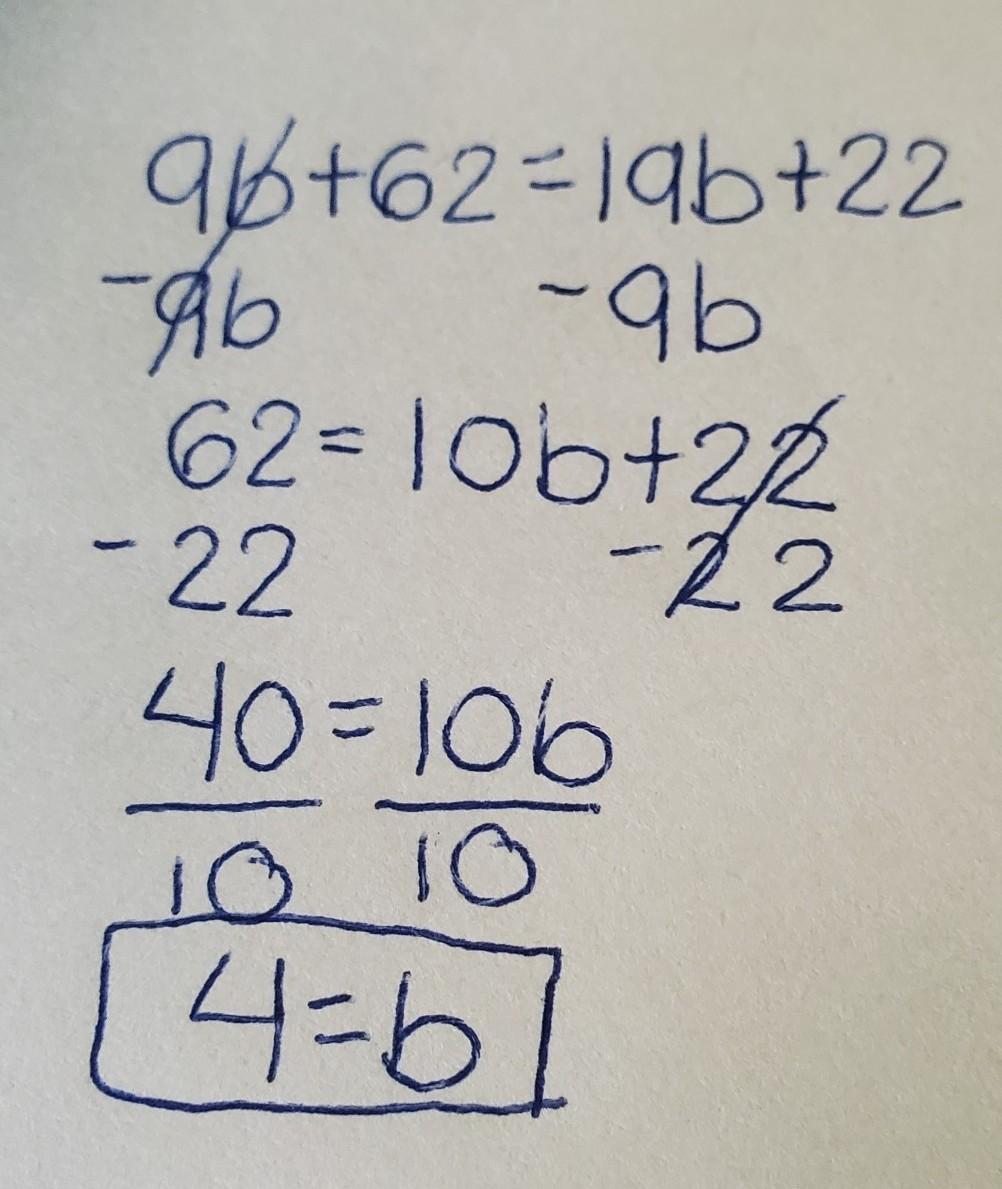 9b+62=19b+22
-9b -9b
62=10b+22
-22 -22
40=10b
10 10
4=b